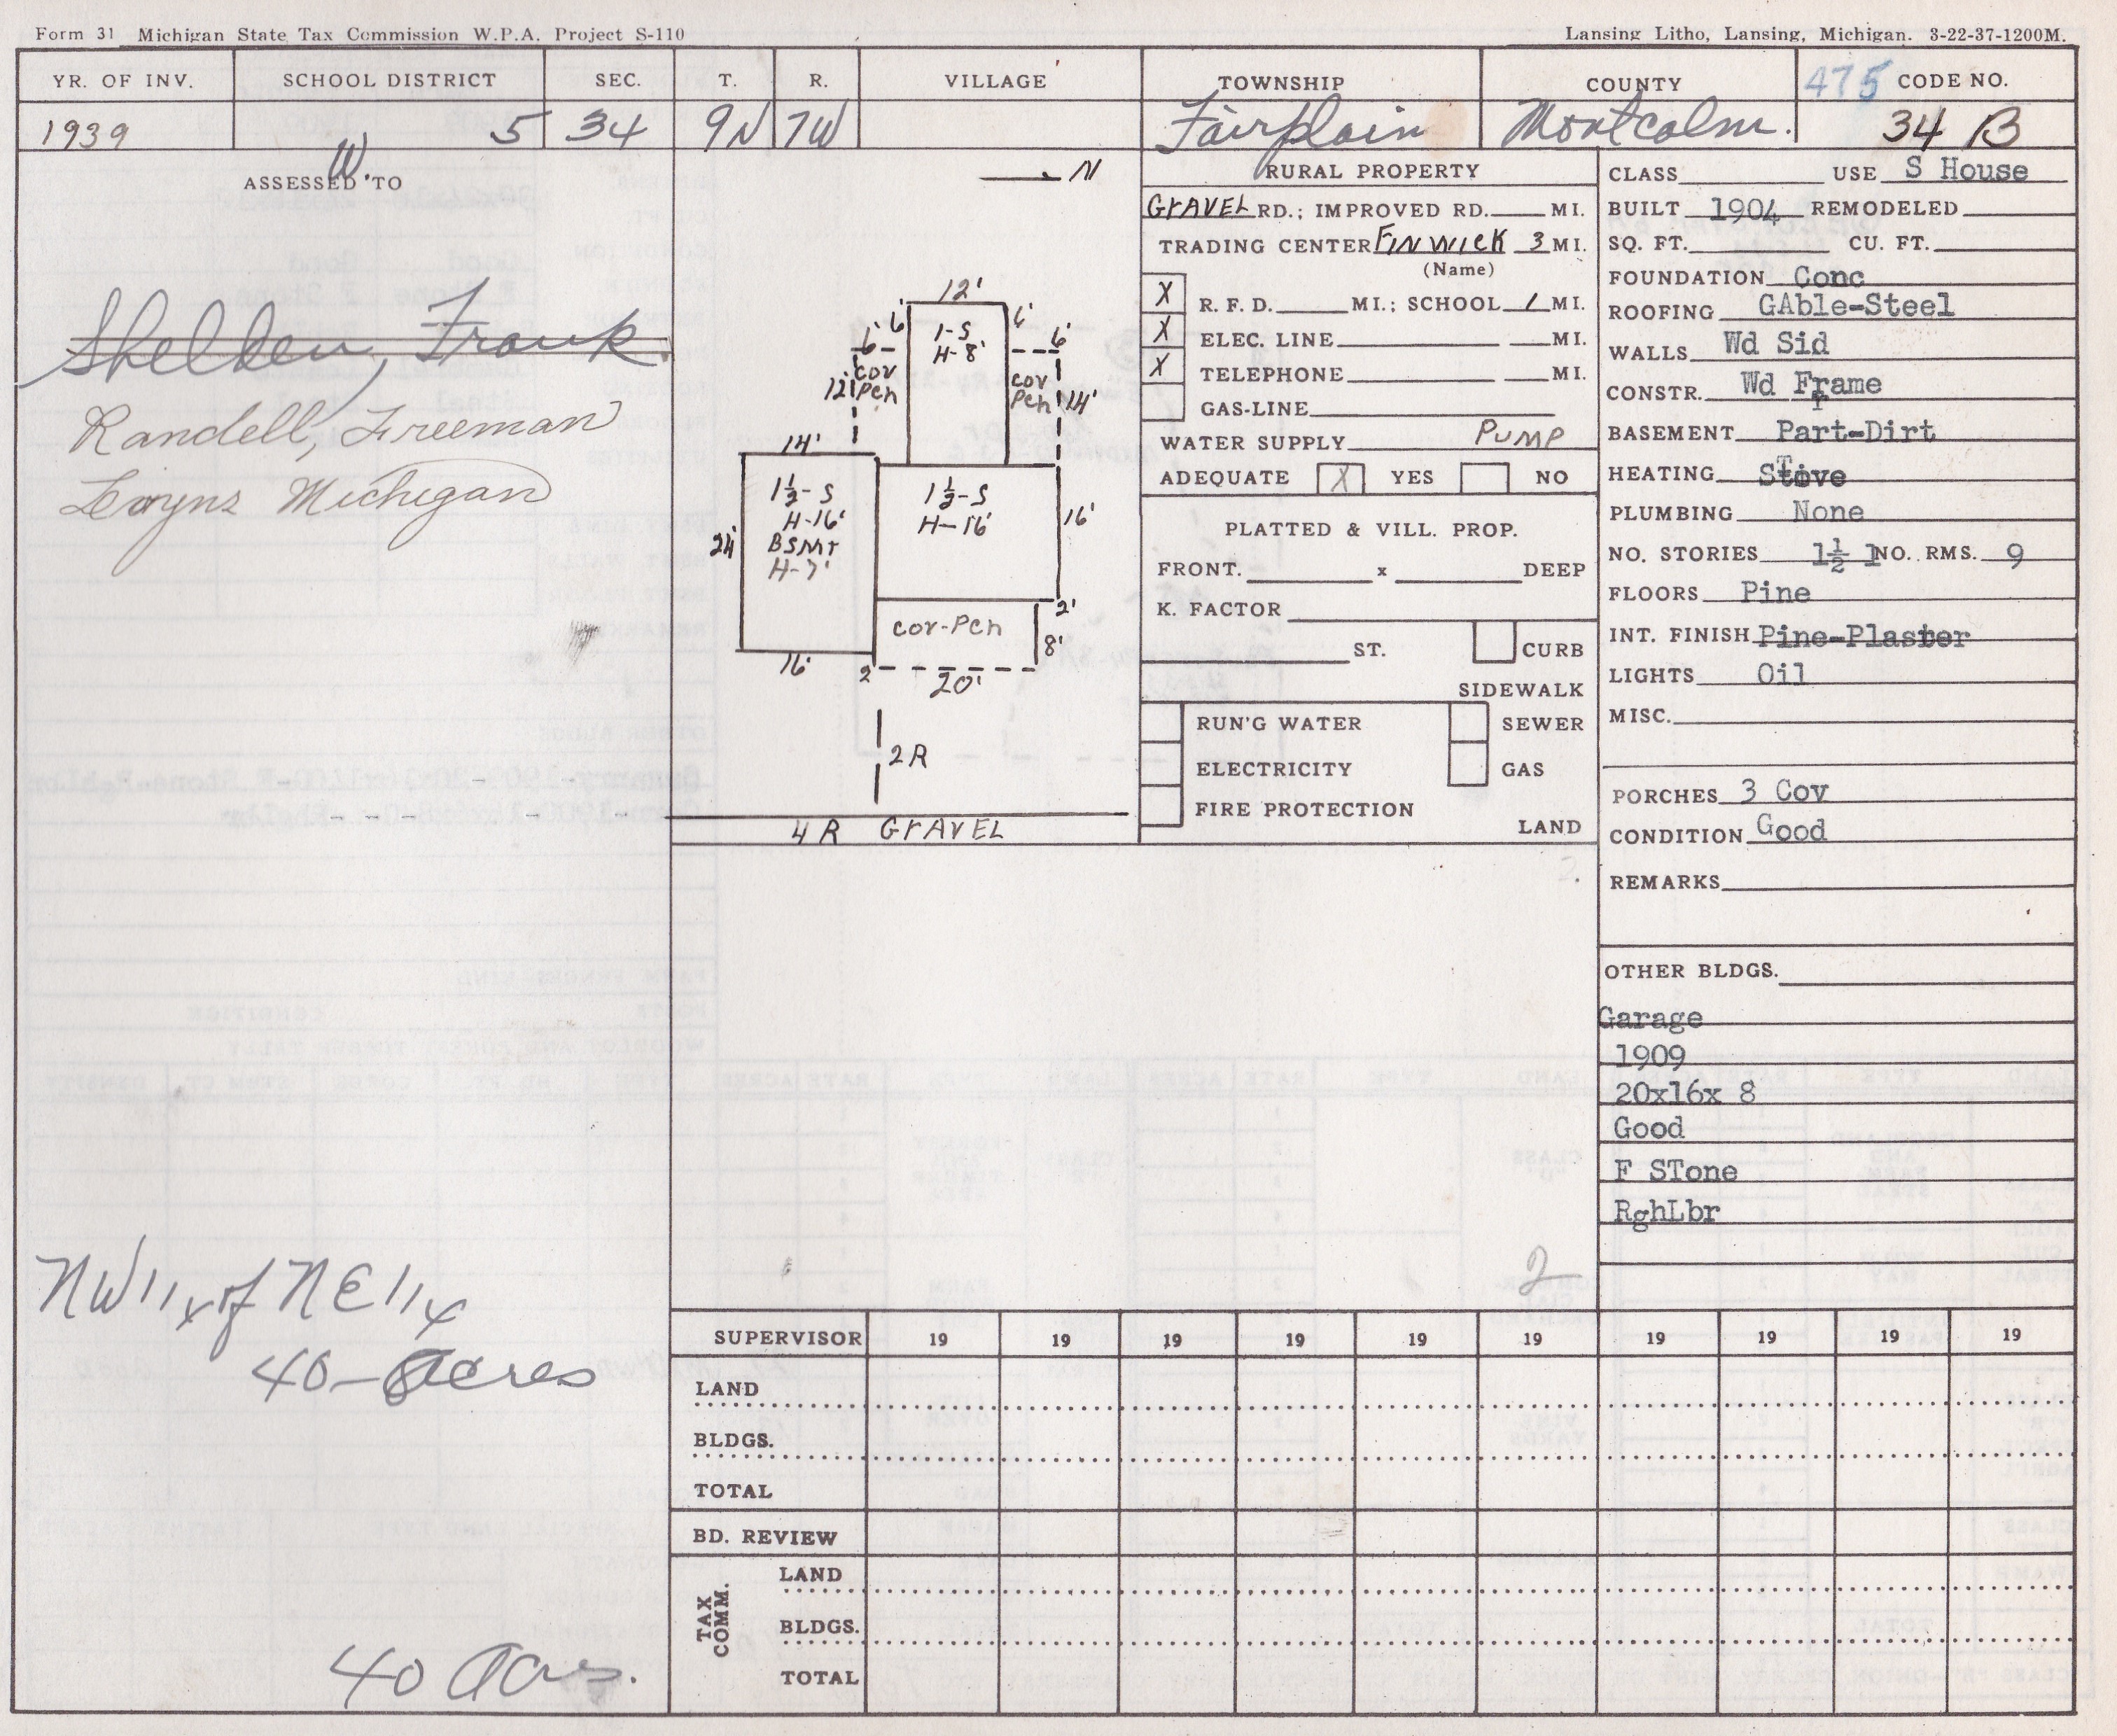 Form 31 Michigan State Tax Commission W.P.A. Project S-110
Lansing Litho, Lansing, Michigan. 3-22-37-1200M.
YR. OF INV. SCHOOL DISTRICT SEC. T. R. VILLAGE TOWNSHIP COUNTY 475 CODE NO.
1939 5 34 9N 7W Fairplain Montcalm. 34 B
W.
ASSESSED TO
Shelden, Frank.
Randell, Freeman
Michigan
NW 1/4 of NE 1/4
40-acres
40 Acrs.
N
12'
6' 6'
1-S
H-8'
6' 6'
12' cov Pch
cov Pch 14'
14'
1½-S
H-16'
BSMT
H-7'
24'
1½-S
H-16'
16'
2'
cov-Pch 8'
16' 2 20'
2R
4R GRAVEL
RURAL PROPERTY
GRAVEL RD.; IMPROVED RD. MI.
TRADING CENTER FINWICK 3 MI.
(Name)
X R. F. D. MI.; SCHOOL 1 MI.
X ELEC. LINE MI.
X TELEPHONE MI.
GAS-LINE
WATER SUPPLY PUMP
ADEQUATE X YES NO
PLATTED & VILL. PROP.
FRONT. x DEEP
K. FACTOR
ST. CURB
SIDEWALK
RUN'G WATER SEWER
ELECTRICITY GAS
FIRE PROTECTION
LAND
2
CLASS USE S House
BUILT 1904 REMODELED
SQ. FT. CU. FT.
FOUNDATION Conc
ROOFING GAble-Steel
WALLS Wd Sid
CONSTR. Wd Frame
BASEMENT Part-Dirt
HEATING Stove
PLUMBING None
NO. STORIES 1½ 1 NO. RMS. 9
FLOORS Pine
INT. FINISH Pine-Plaster
LIGHTS Oil
MISC.
PORCHES 3 Cov
CONDITION Good
REMARKS
OTHER BLDGS.
Garage
1909
20x16x 8
Good
F STone
RghLbr
SUPERVISOR 19 19 19 19 19 19 19 19 19 19
LAND
BLDGS.
TOTAL
BD. REVIEW
TAX COMM.
LAND
BLDGS.
TOTAL